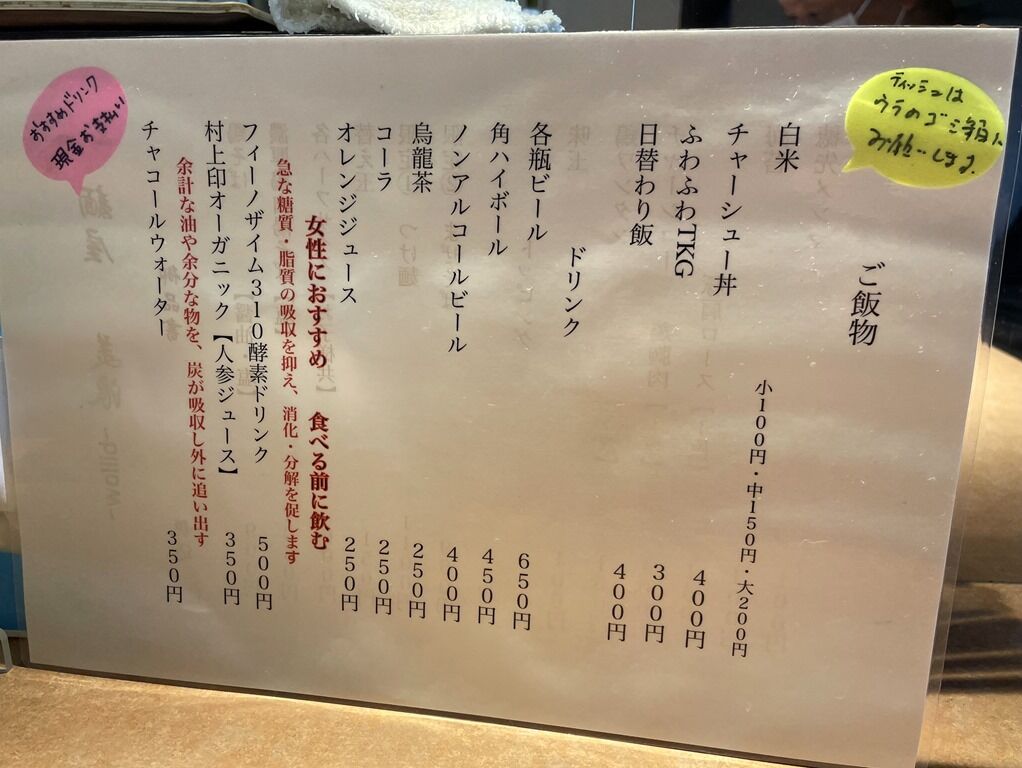 ティッシュは
ウラのゴミ箱に
お願いします
ご飯物
白米
小100円・中150円・大200円
チャーシュー丼
400円
ふわふわTKG
300円
日替わり飯
400円
ドリンク
各瓶ビール
650円
角ハイボール
450円
ノンアルコールビール
400円
烏龍茶
250円
コーラ
250円
オレンジジュース
250円
女性におすすめ 食べる前に飲む
急な糖質・脂質の吸収を抑え、消化・分解を促します
フィーノザイム310酵素ドリンク
500円
村上印オーガニック【人参ジュース】
350円
余計な油や余分な物を、炭が吸収し外に追い出す
チャコールウォーター
350円
おすすめドリンク
現金お支払い